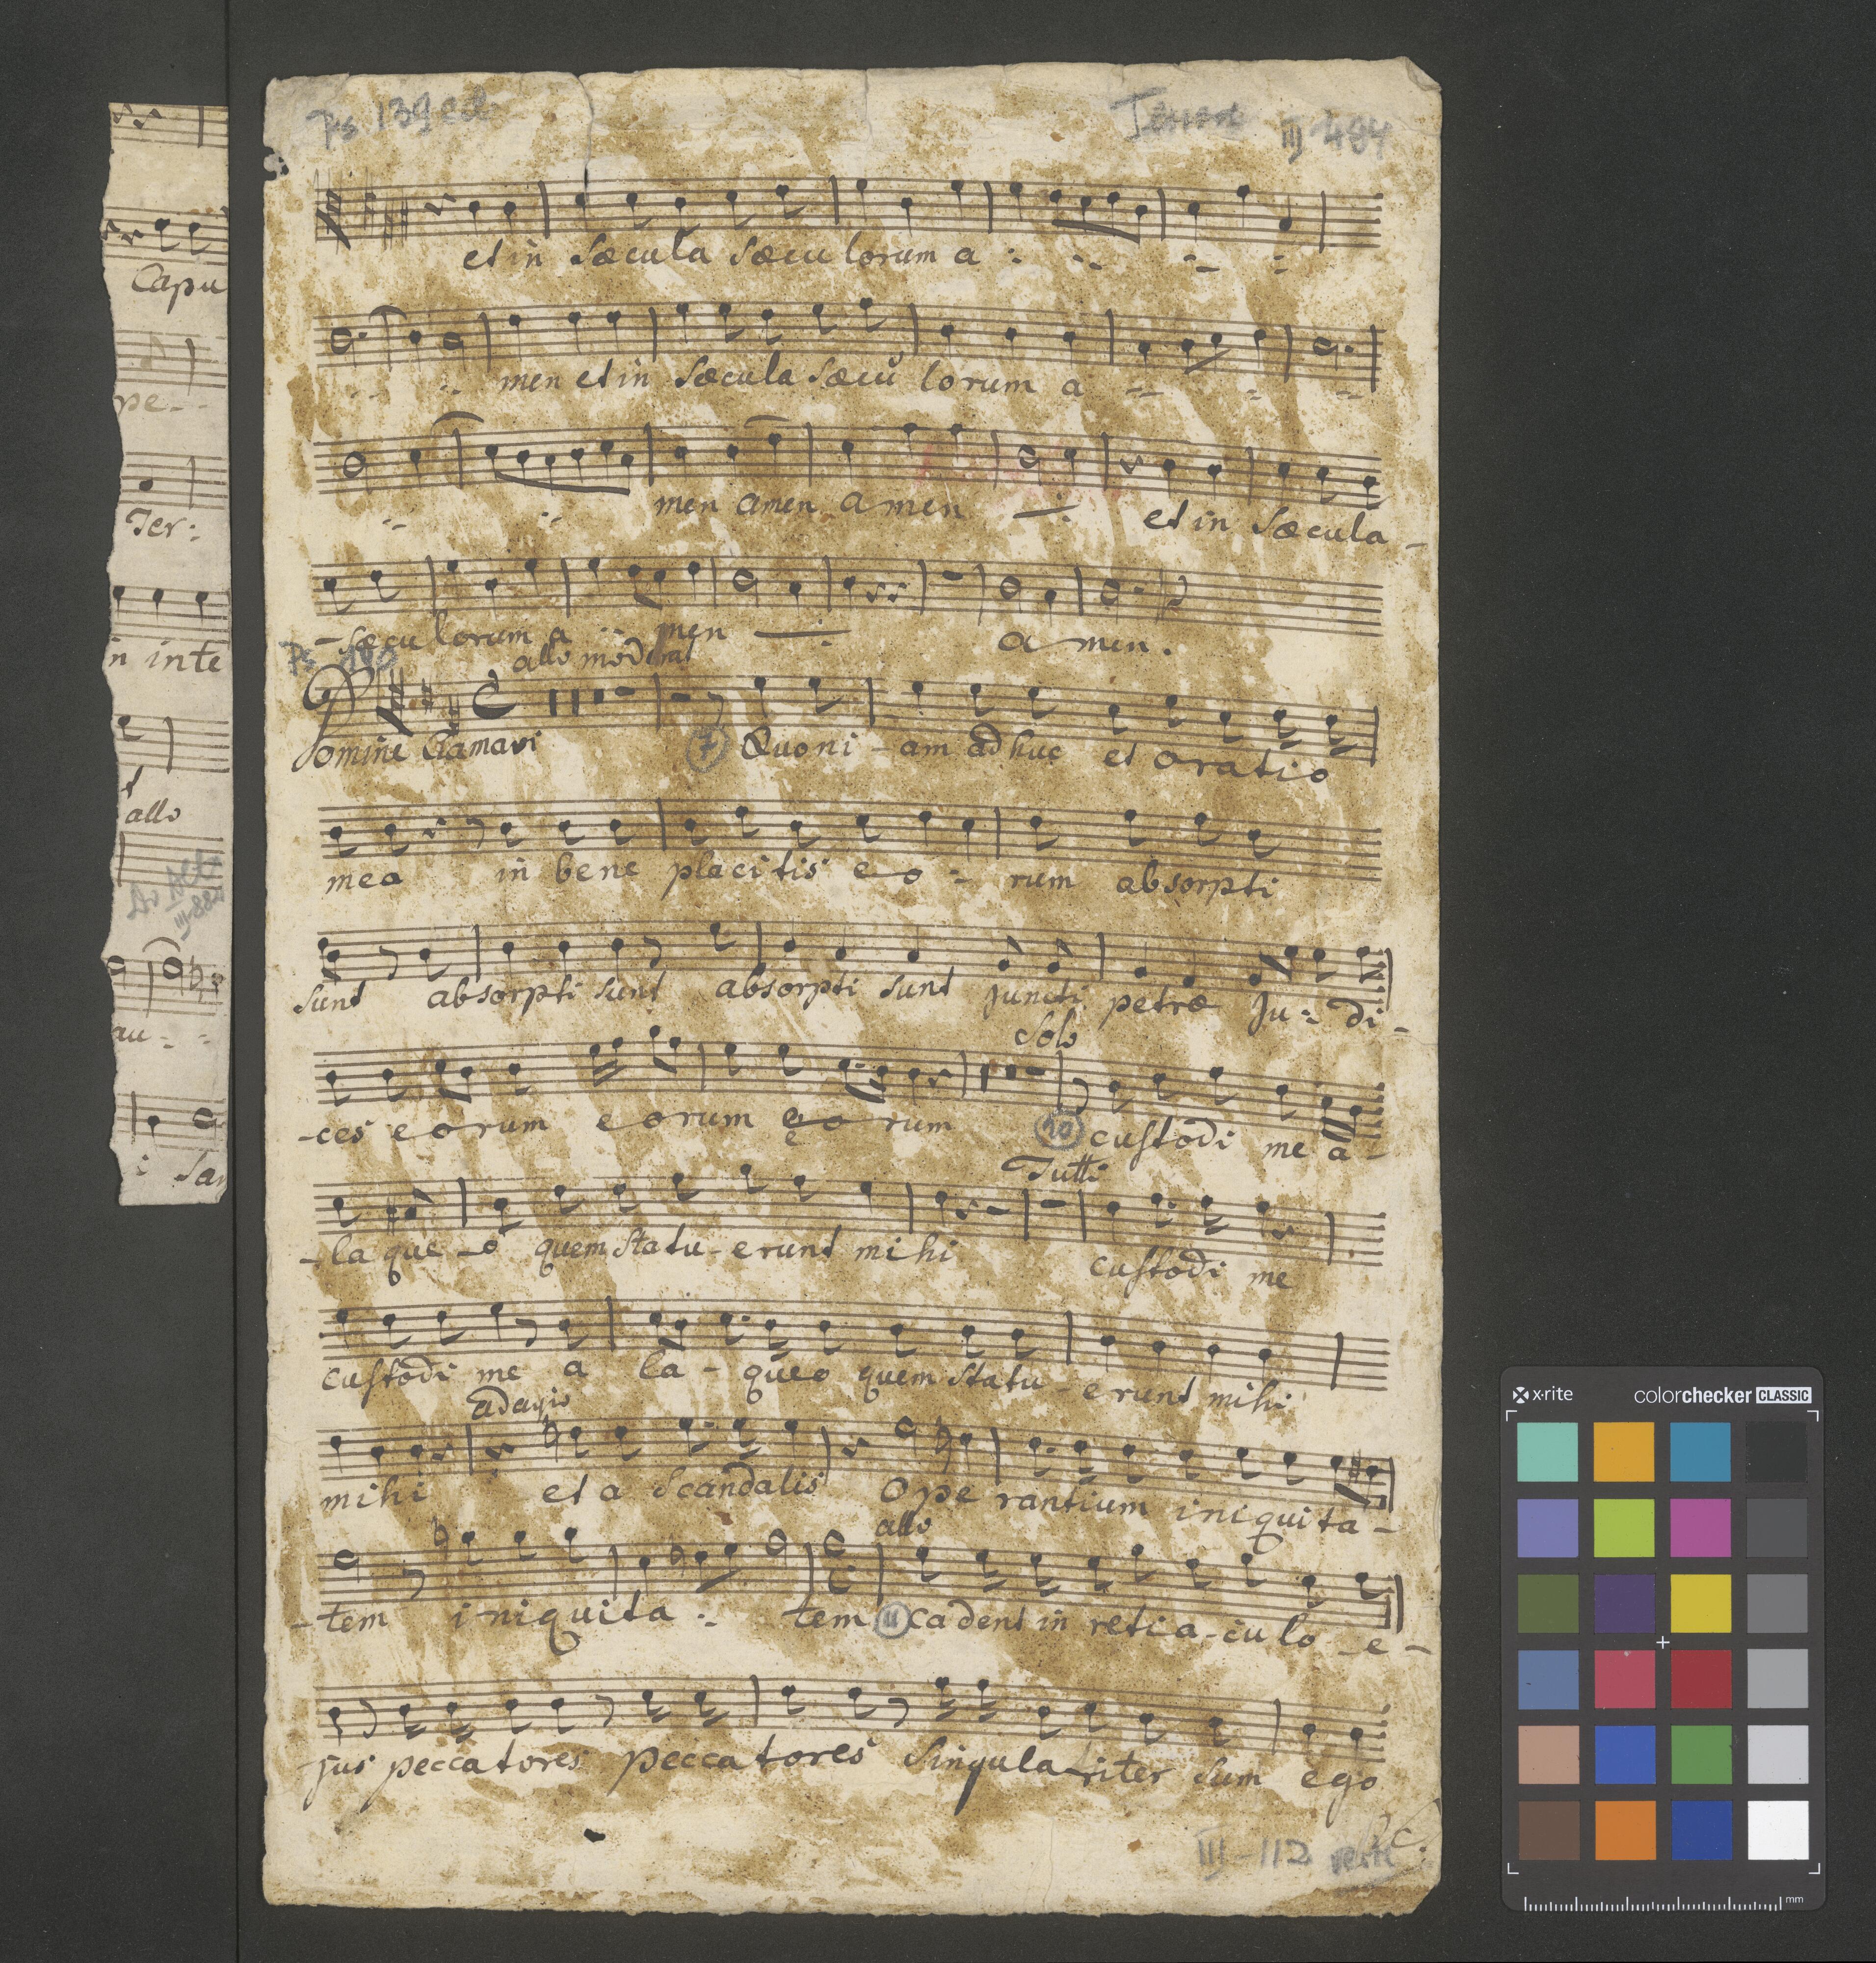 Capu
pe - -
Ter:
n inte
allo
III-884
au - -
: San
Ps. 139 ed. Tenor III 484
et in sæcula sæcu lorum a : -- -- --
men et in sæcula sæcu lorum a -- -- --
-- -- men amen amen et in sæcula -
- sæcu lorum a -- men amen.
Ps 140 allo moderat
Domine Clamavi 7 Quoni - am adhuc et oratio
mea in bene placitis eo - rum absorpti
sunt absorpti sunt absorpti sunt juncti petræ Ju - di -
Solo
- ces eorum eorum eo rum 10 custodi me a -
Tutti
- la que - o quem statu - erunt mihi custodi me
custodi me a la - queo quem statu - erunt mihi
adagio
mihi et a scandalis Ope rantium iniquita -
allo
- tem iniquita - tem 11 cadent in retia - culo - e -
jus peccatores peccatores singulariter sum ego
III-112 verte
x-rite colorchecker CLASSIC
mm